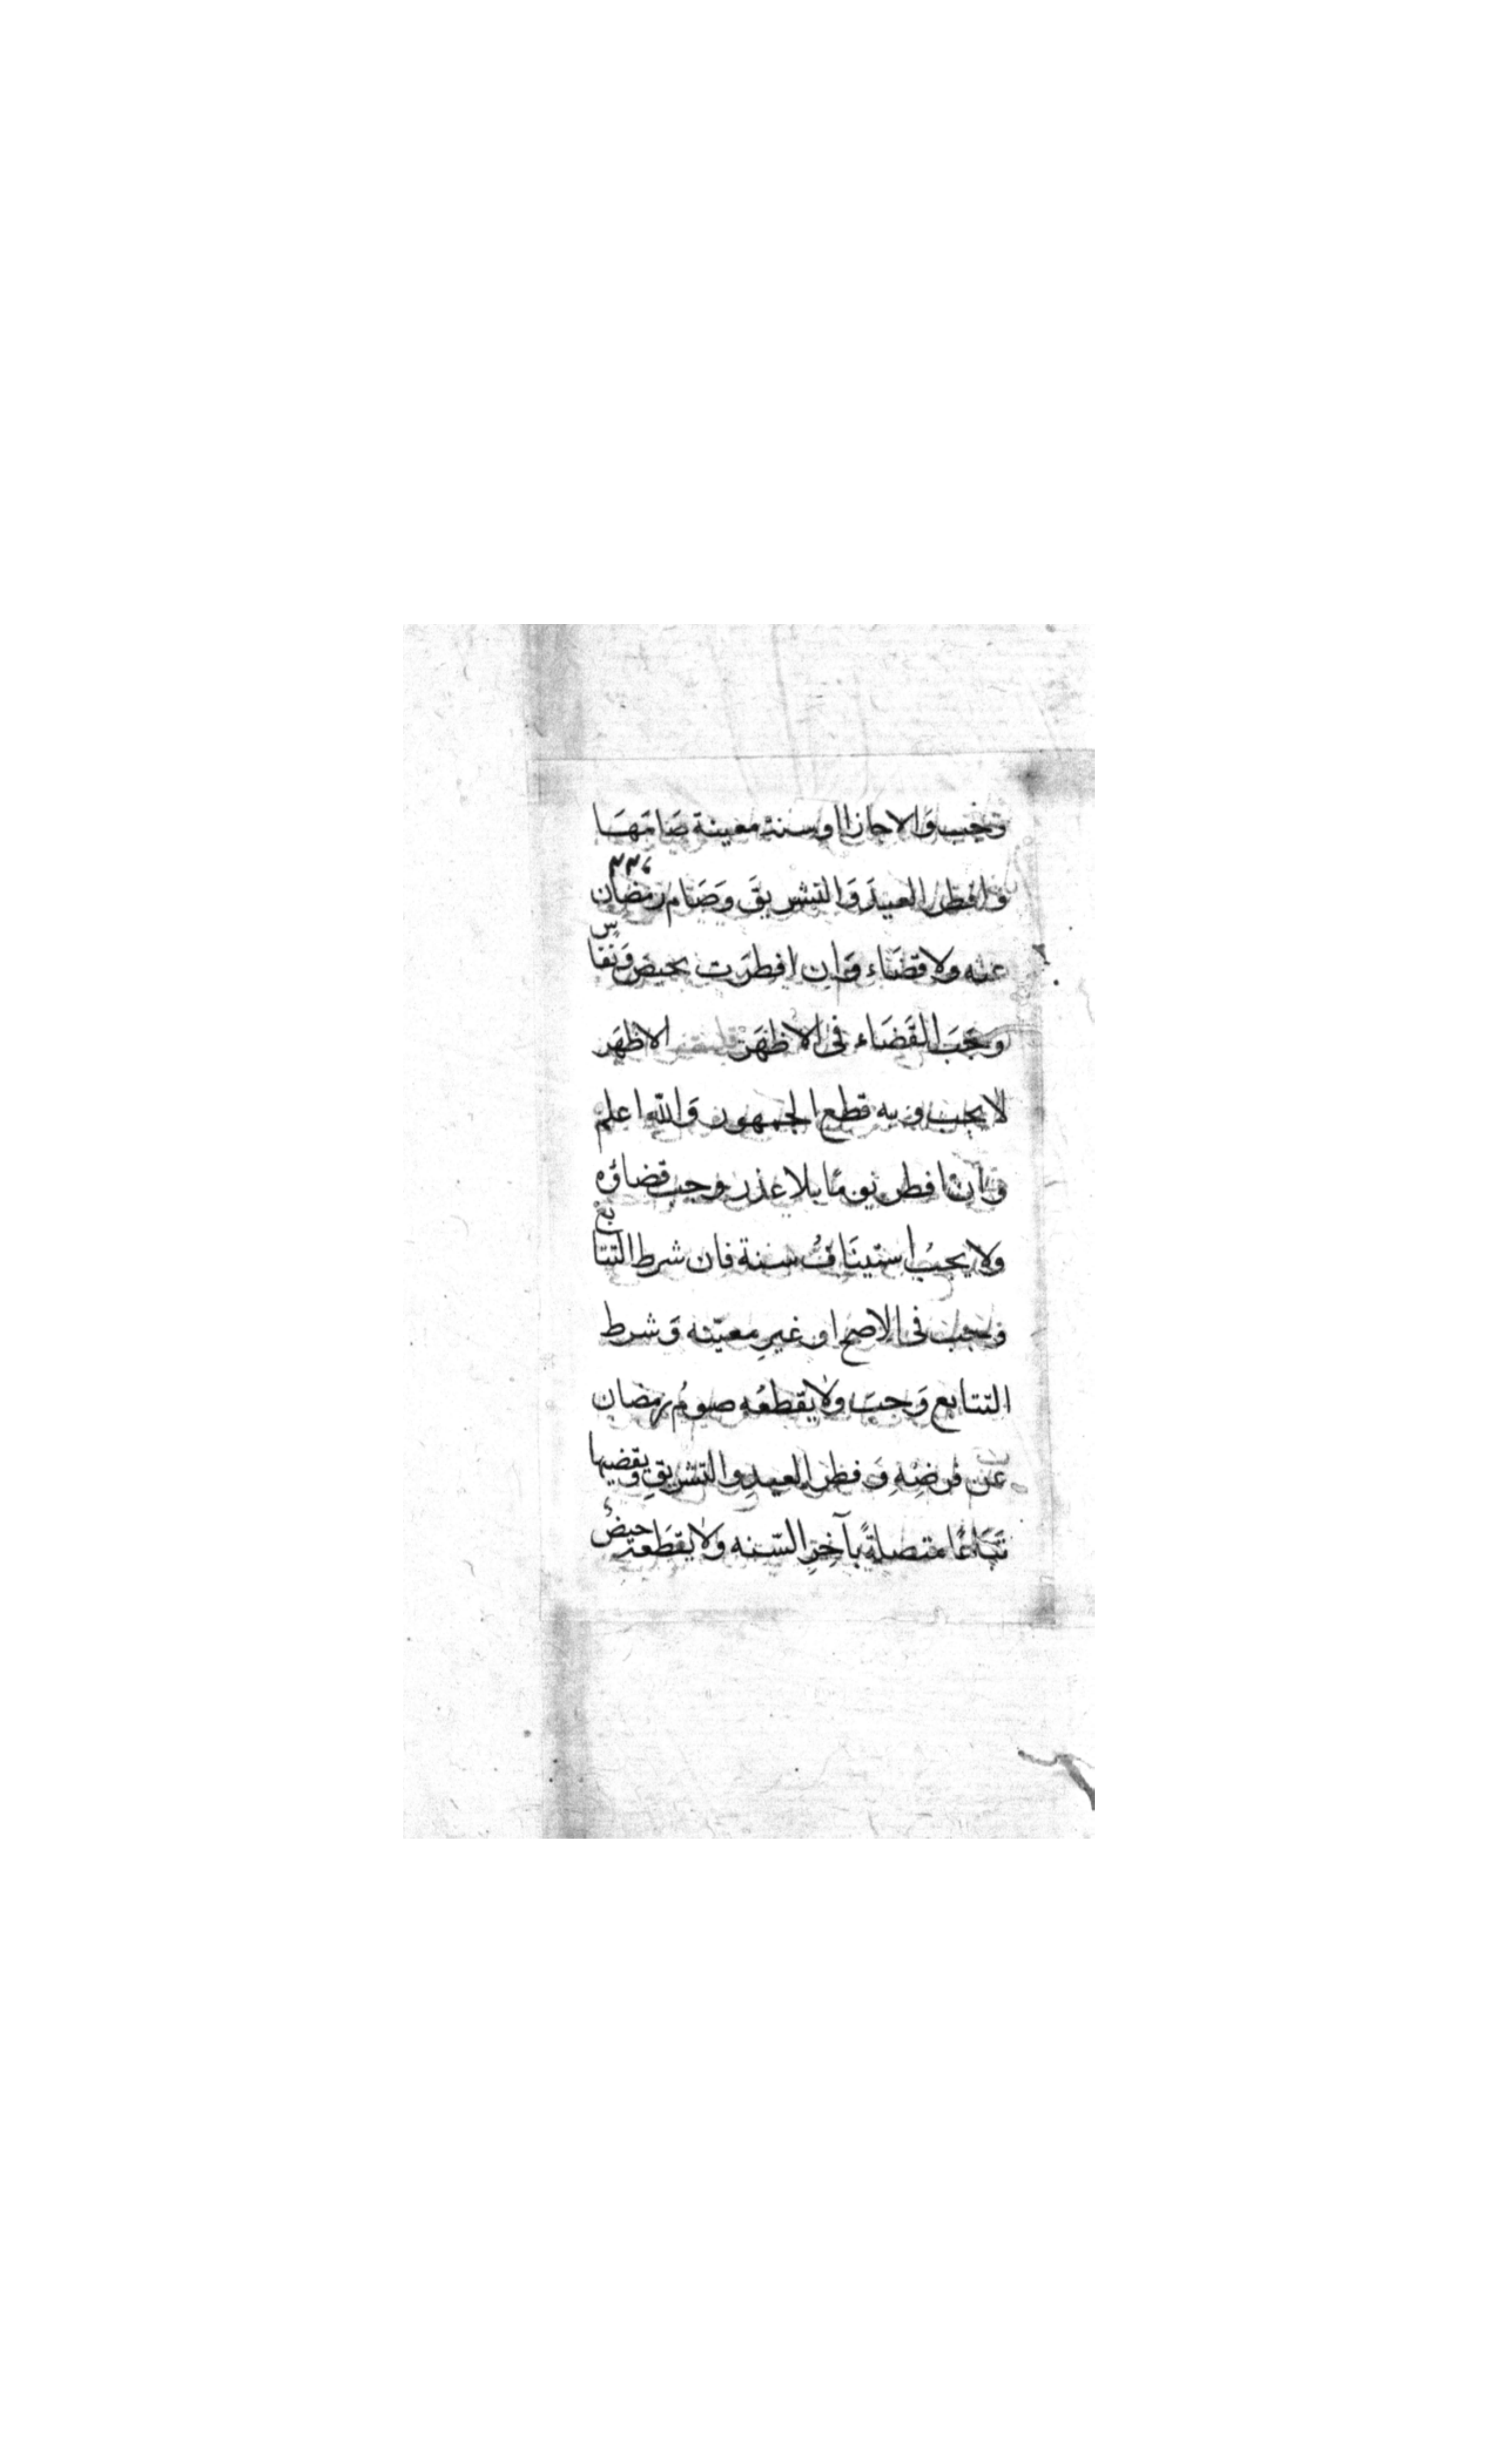 وجب والا جاز او سنة معينة صَامَهَا
وافطر العيدَ وَالتشريقَ وَصَام رمضان
عنه ولا قضَاء وَان افطرَت بحيض وَنفاس
وجَبَ القَضَاء فى الاظهَر قلت الاظهَر
لا يجب وبه قطع الجمهور وَالله اعلم
وان افطر يومًا بلا عذر وجب قضاؤه
ولا يجبُ استينَافُ سنة فان شرط التتابع
وجب فى الاصح او غيرِ معيّنه وَشرط
التتابع وَجبَ ولا يقطعُه صومُ رمضان
عن فرضِهِ وَ فطر العيدِ والتشريقِ ويقضيها
تبَاعًا متصلةً بآخِرِ السّنه ولا يقطَعه حيضٌ